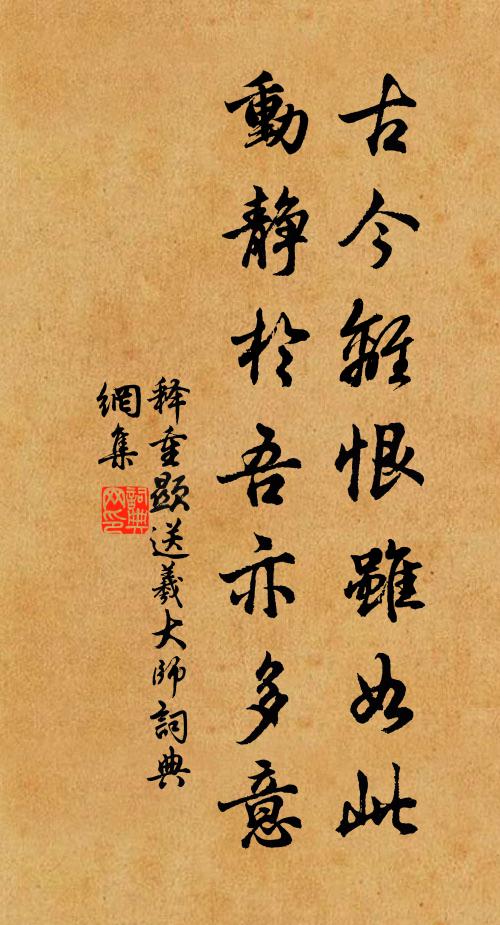 古今離恨雖如此
動静於吾亦多意
释重顯送羲大師詞典
網集
詞典
网印